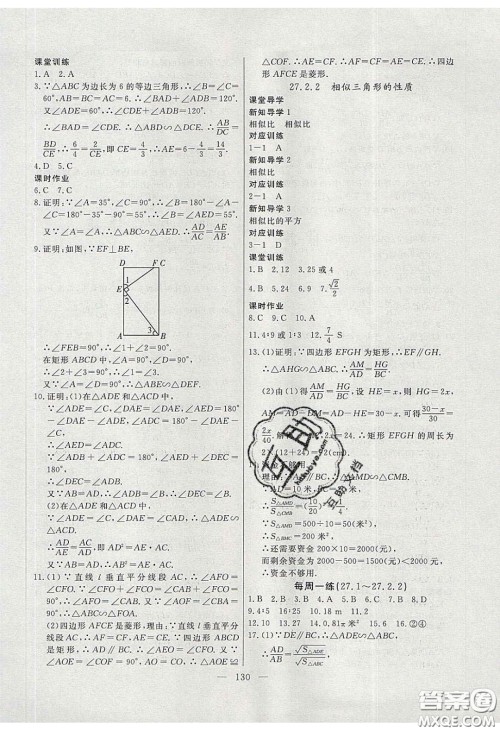 课堂训练
1. A  2. A
3. ∵△ABC为边长为 6 的等边三角形，∴∠B=∠C=
60°，AB=BC=6. ∴∠BAD+∠ADB=120°.
∵∠ADE=60°，∴∠ADB+∠EDC=120°.
∴∠BAD=∠EDC. ∴△ABD∽△DCE. ∴AB/DC=
BD/CE，即6/4=2/CE，∴CE=4/3.
4. D  5. C
课时作业
6. C  7. C
8. 证明：∵∠A=35°，∠C=90°，∴∠B=180°-∠A
-∠C=180°-35°-90°=55°. ∴∠B=∠AED=55°.
又∵∠A=∠A，∴△ADE∽△ACB.
9. 证明：如图，∵EF⊥BE，
D F C
E 1
2
3
A B
∴∠FEB=90°，∴∠1+∠2=90°.
在矩形 ABCD 中，∵∠A=∠D=90°，
∴∠2+∠3=90°. ∴∠1=∠3.
又∵∠A=∠D，∴△ABE∽△DEF.
10. 证明：(1)在△ADE 和△ACD 中，
∵∠ADE=∠C，∠DAE=∠DAE，
∴∠AED=180°-∠DAE-∠ADE，
∠ADC=180°-∠DAE-∠C，
∴∠AED=∠ADC.
∵∠AED+∠DEC=180°，
∠ADB+∠ADC=180°，
∴∠DEC=∠ADB.
又∵AB=AD，∴∠ADB=∠B.
∴∠DEC=∠B.
(2)在△ADE 和△ACD 中，
∵∠ADE=∠C，∠DAE=∠DAE，
∴△ADE∽△ACD.
∴AD/AE=AC/AD，即 AD²=AE·AC.
又∵AB=AD，∴AB²=AE·AC.
11. (1)∵直线 l 垂直平分线段 AC，∴∠AFO=
∠CFO. ∵CF⊥AB，∴∠COE=∠CFO=
∠AFO. ∴∠FAO=∠CBA，∠AFO=∠COB.
∴△ABC∽△FOA.
(2)四边形 AFCE 是菱形，理由：∵直线 l 垂直平分线
段 AC，∴∠AOE=∠COF=90°，OA=OC. ∵四边形
ABCD 为矩形，∴AD∥BC. ∴∠FCO=∠EAO. 又∵
∠AOE=∠COF=90°，OA=OC，∴△AOE≌
△COF. ∴AE=CF. ∴AF=CF=AE=CE. ∴四
边形 AFCE 是菱形.
27.2.2 相似三角形的性质
课堂导学
新知导学 1
相似比 相似比
对应训练
1-1 A
新知导学 2
相似比
对应训练
2-1 A
新知导学 3
相似比的平方
对应训练
3-1 D
课堂训练
1. B  2. 12  3. 25或4
4. B  5. 24  6. 9  7. √2/2
课时作业
8. C  9. C  10. A
11. 4∶9 或 1∶3  12. 7/4 S
13. (1)证明：∵四边形 EFGH 为矩形，∴EF∥GH.
∴△AHG∽△ABC. ∴AM/AD=HG/BC.
(2)由(1)得AM/AD=HG/BC，设 HE=x，则 HG=2x，
AM=AD-DM=AD-HE=30-x，可得(30-x)/30=
2x/40. 2x=24. ∴矩形 EFGH 的周长为
2×(12+24)=72(cm).
资金不够用.
∵AD∥BC，∴△AMD∽△CMB.
∵AD=10 米，
∵S△AMD=500÷10=50(米²)，
∴S△BMC=200(米²).
∴还需要资金 200×10=2000(元).
而剩余资金为 2000-500=1500(元)<2000(元).
∴资金不够用.
每周一练(27.1～27.2.2)
1. B  2. B  3. B  4. A  5. B  6. C  7. B  8. D
9. 4∶5  10. 12  14. 0.81π 米²  15. 9  16. ②④
17. (1)∵DE∥BC，∴△ADE∽△ABC.
∴AD/AB=√S△ADE/√S△ABC.
130
互助
互助文档
答案圈
MXQE.COM